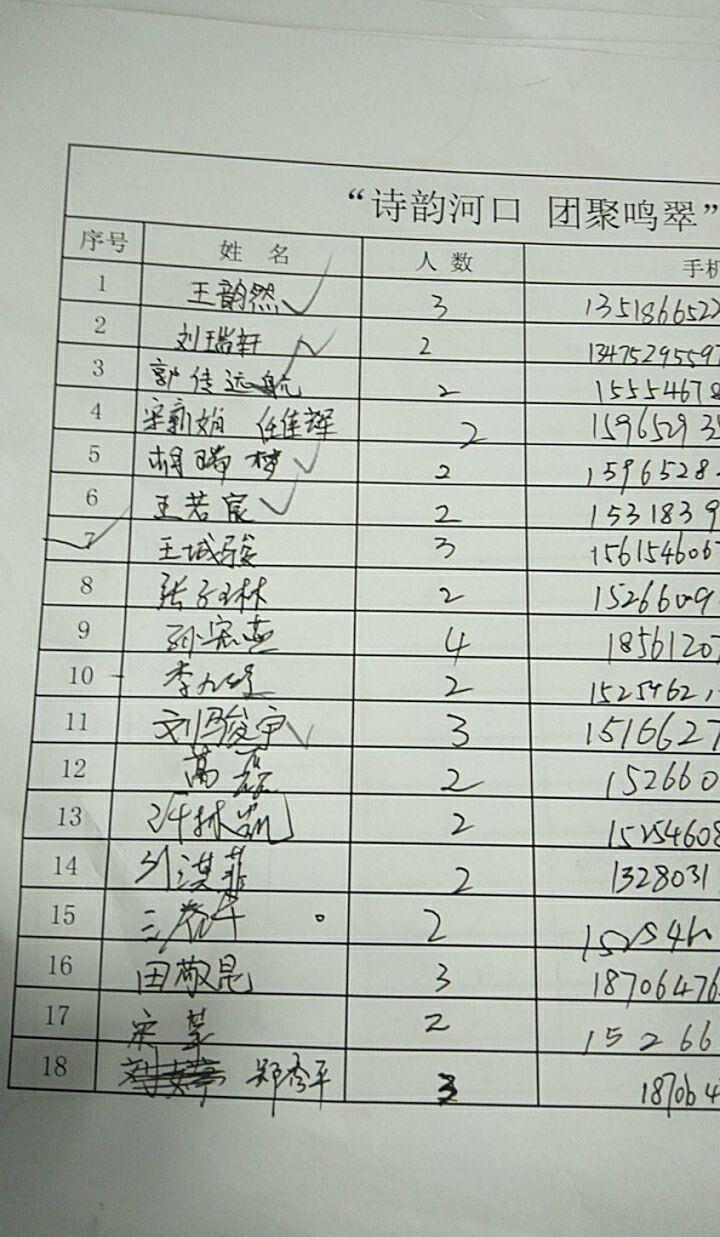 “诗韵河口 团聚鸣翠”
序号 姓 名 人 数 手机
1 王韵然 3 1351866522
2 刘瑞轩 2 13475295597
3 郭佳远航 2 15554678
4 宋新娟 任佳辉 2 15965293
5 胡瑞梦 2 15965284
6 王若宸 2 1531839
7 王城骏 3 1561546067
8 张子琳 2 15266091
9 孙宏燕 4 18561207
10 李 2 15259621
11 刘骏宇 3 1516627
12 高磊 2 152660
13 许林凯 2 15254608
14 刘淇菲 2 1328031
15 2 152546
16 田敬昆 3 18706476
17 宋莹 2 15266
18 郑秀平 3 187064